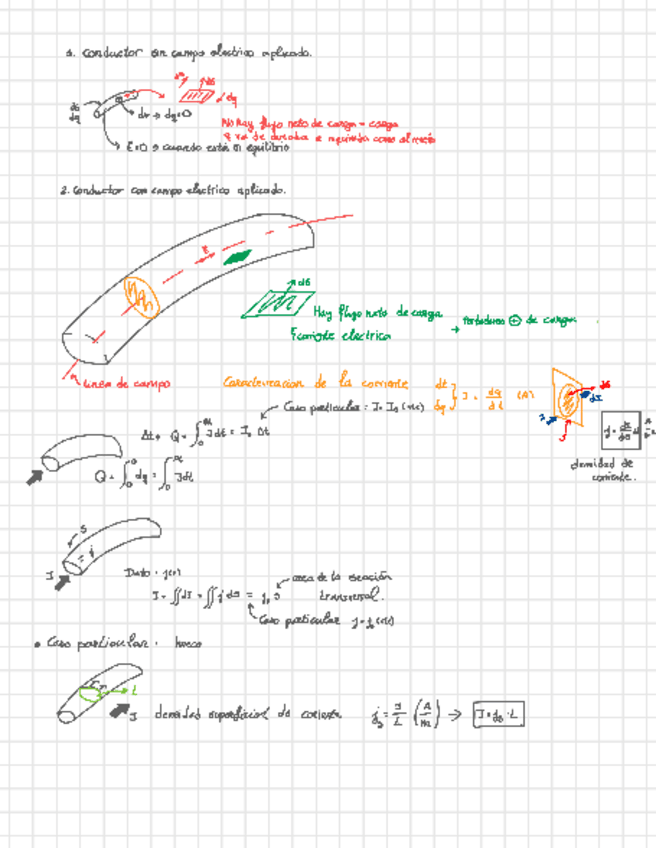 1. Conductor sin campo electrico aplicado.
dS
dS
dq
dq
dv → dq=0
No hay flujo neto de carga = carga
q va de derecha a izquierda como al revés
E=0 → cuando están en equilibrio
2. Conductor con campo electrico aplicado.
E
dS
Hay flujo neto de carga → Portadores ⊕ de carga
corriente electrica
Linea de campo
Caracterización de la corriente dt dq } I = dq/dt (A)
Caso particular: I = I₀ (cte)
dS
dI
I
J
Δt → Q = ∫₀^Δt I dt = I₀ Δt
Q = ∫₀^Q dq = ∫₀^Δt I dt
densidad de
corriente.
S
j
I
Dato: j(r)
area de la sección
transversal.
I = ∬ dI = ∬ j dS = j₀ S
Caso particular j = j₀ (cte)
• Caso particular: hueco
L
I
densidad superficial de corriente
jₛ = I/L (A/m) → I = jₛ · L